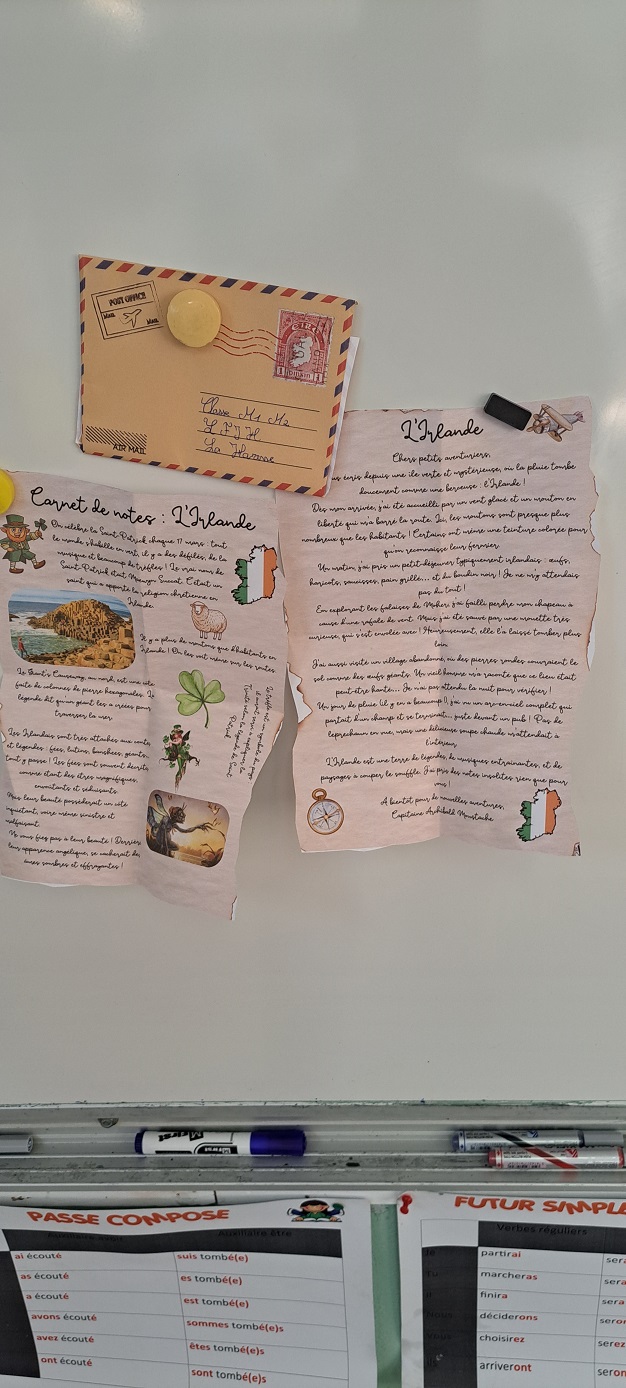 POST OFFICE
MAIL
MAIL
AIR MAIL
Classe M1 M2
La Hamac
L'Irlande
Chers petits aventuriers,
vous écris depuis une île verte et mystérieuse, où la pluie tombe
doucement comme une berceuse : l'Irlande !
Dès mon arrivée, j'ai été accueilli par un vent glacé et un mouton en
liberté qui m'a barré la route. Ici, les moutons sont presque plus
nombreux que les habitants ! Certains ont même une teinture colorée pour
qu'on reconnaisse leur fermier.
Un matin, j'ai pris un petit-déjeuner typiquement irlandais : œufs,
haricots, saucisses, pain grillé... et du boudin noir ! Je ne m'y attendais
pas du tout !
En explorant les falaises de Moher, j'ai failli perdre mon chapeau à
cause d'une rafale de vent. Mais j'ai été sauvé par une mouette très
curieuse, qui s'est envolée avec ! Heureusement, elle l'a laissé tomber plus
loin.
J'ai aussi visité un village abandonné, où des pierres rondes couvraient le
sol comme des œufs géants. Un vieil homme m'a raconté que ce lieu était
peut-être hanté... Je n'ai pas attendu la nuit pour vérifier !
Un jour de pluie (il y en a beaucoup !), j'ai vu un arc-en-ciel complet qui
partait d'un champ et se terminait... juste devant un pub ! Pas de
leprechaun en vue, mais une délicieuse soupe chaude m'attendait à
l'intérieur.
L'Irlande est une terre de légendes, de musiques entraînantes, et de
paysages à couper le souffle. J'ai pris des notes insolites rien que pour
vous !
A bientôt pour de nouvelles aventures,
Capitaine Archibald Moustache
Carnet de notes : L'Irlande
On célèbre la Saint-Patrick chaque 17 mars : tout
le monde s'habille en vert, il y a des défilés, de la
musique et beaucoup de trèfles ! Le vrai nom de
Saint-Patrick était Maewyn Succat. C'était un
saint qui a apporté la religion chrétienne en
Irlande.
Il y a plus de moutons que d'habitants en
Irlande ! On les voit même sur les routes.
Le Giant's Causeway, au nord, est une côte
faite de colonnes de pierre hexagonales. La
légende dit qu'un géant les a créées pour
traverser la mer.
Le trèfle est un symbole du pays
il aurait servi à expliquer la
Trinité selon la légende de Saint
Patrick.
Les Irlandais sont très attachés aux contes
et légendes : fées, lutins, banshees, géants...
tout y passe ! Les fées sont souvent décrites
comme étant des êtres magnifiques,
envoûtants et séduisants.
Mais leur beauté posséderait un côté
inquiétant, voire même sinistre et
malfaisant.
Ne vous fiez pas à leur beauté ! Derrière
leur apparence angélique, se cacherait des
âmes sombres et effrayantes !
PASSE COMPOSE
Auxiliaire être
ai écouté suis tombé(e)
as écouté es tombé(e)
a écouté est tombé(e)
avons écouté sommes tombé(e)s
avez écouté êtes tombé(e)s
ont écouté sont tombé(e)s
FUTUR SIMPLE
Verbes réguliers
partirai
marcheras
finira
déciderons
choisirez
arriveront